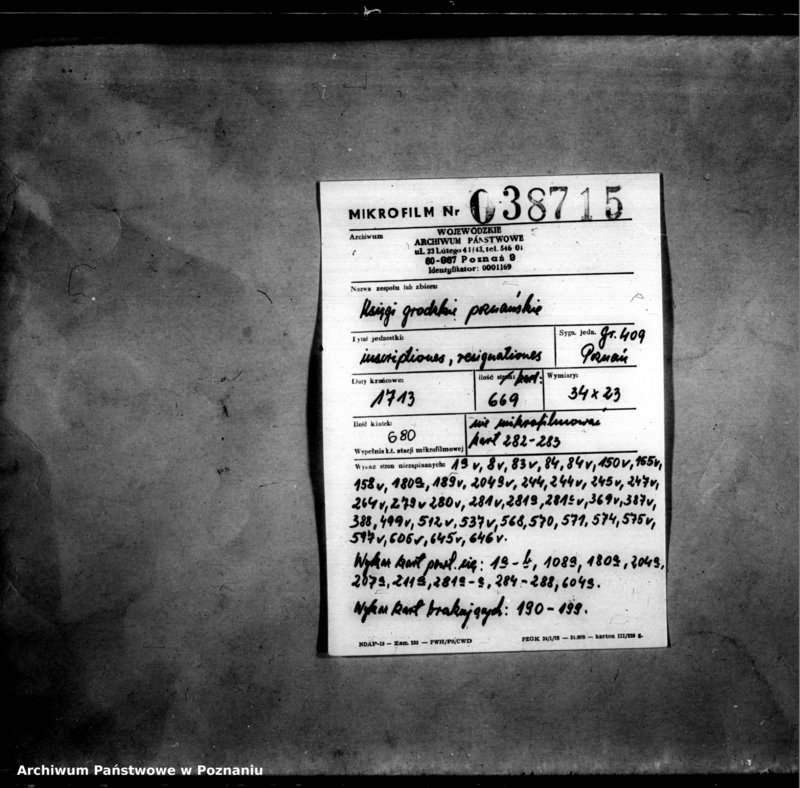 MIKROFILM Nr 038715
Archiwum
WOJEWÓDZKIE
ARCHIWUM PAŃSTWOWE
ul. 23 Lutego 41/43, tel. 546 01
60-967 Poznań 9
Identyfikator: 0001169
Nazwa zespołu lub zbioru
Księgi grodzkie poznańskie
Tytuł jednostki:
inscriptiones, resignationes
Sygn. jedn. Gr. 409
Poznań
Daty krańcowe:
1713
ilość stron: kart:
669
Wymiary:
34 x 23
Ilość klatek:
680
Wypełnia k.t. stacji mikrofilmowej
nie mikrofilmować
kart 282-283
Wykaz stron niezapisanych: 1av, 8v, 83v, 84, 84v, 150v, 155v,
158v, 180a, 189v, 204av, 244, 244v, 245v, 247v,
264v, 279v 280v, 281v, 281a, 281cv, 369v, 387v,
388, 499v, 512v, 537v, 568, 570, 571, 574, 575v,
597v, 606v, 645v, 646v.
Wykaz kart powt. się: 1a-b, 108a, 180a, 204a,
207a, 211a, 281a-c, 284-288, 604a.
Wykaz kart brakujących: 190-199.
NDAP-16 — Zam. 133 — PWH/Pś/CWD
PZGK